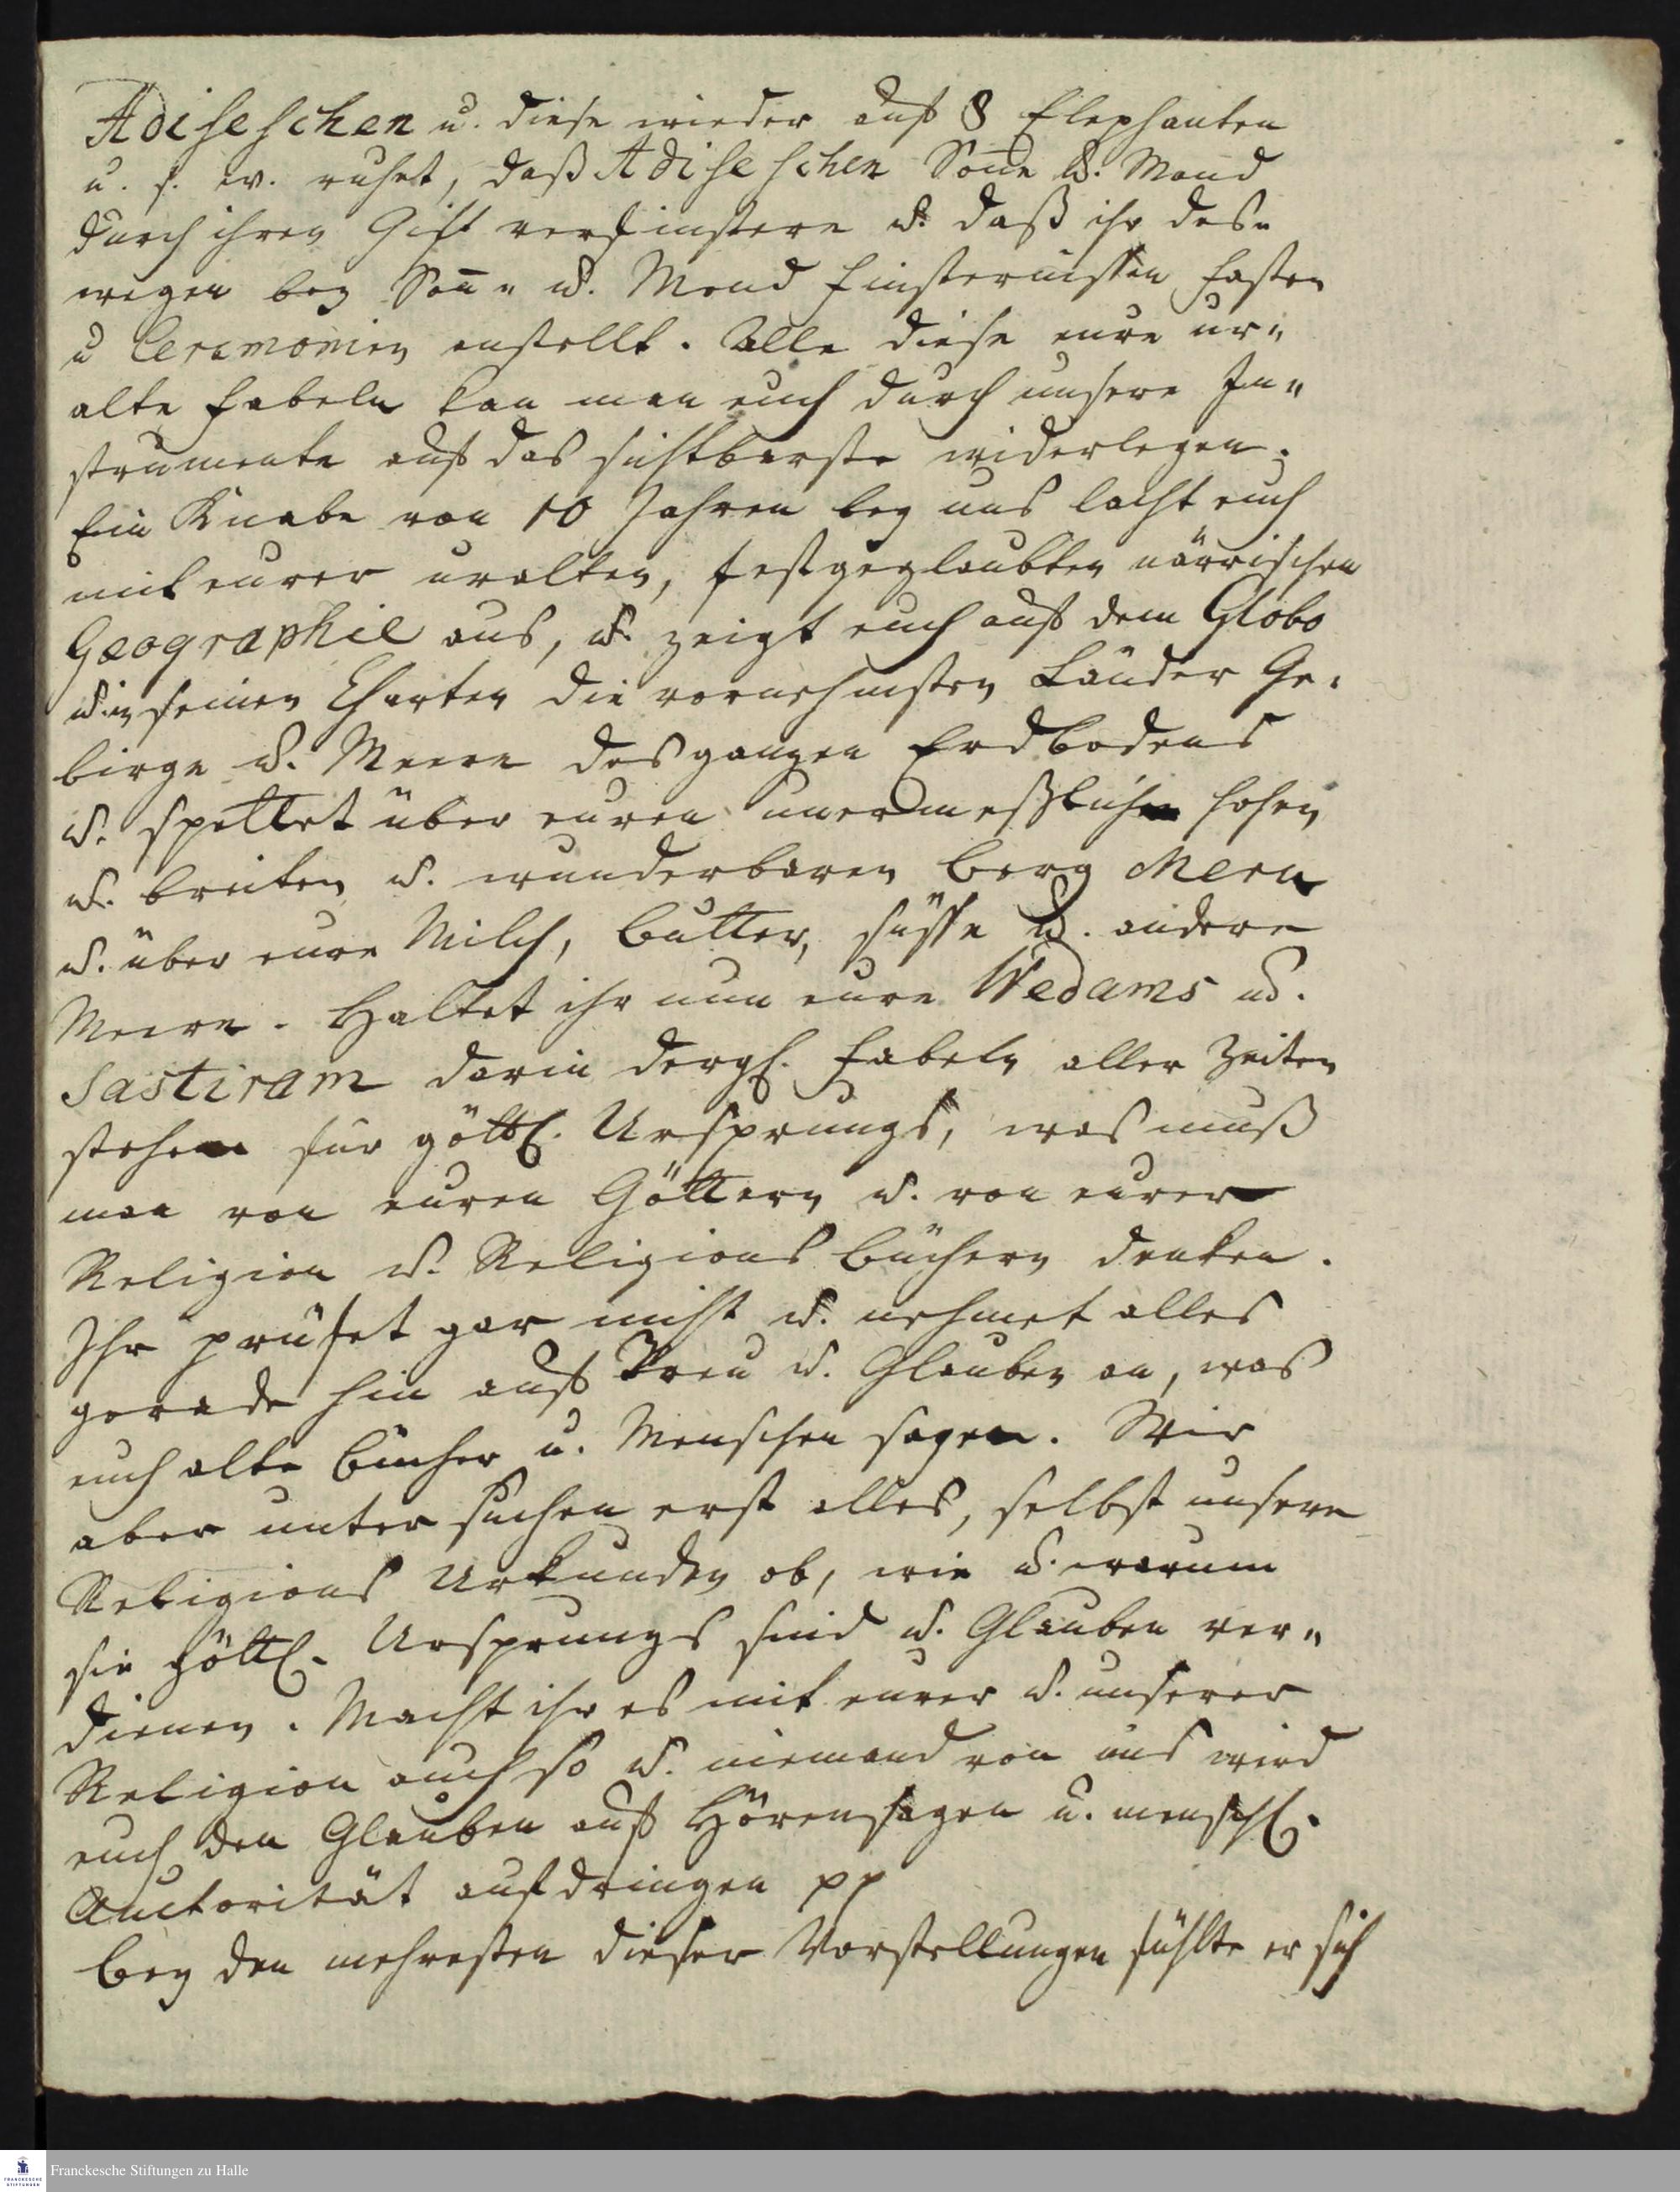 Adiseschen u. diese wieder auf 8 Elephanten
u. s. w. ruhet, daß Adiseschen Soñe u. Mond
durch ihren Gift verfinstere u. daß ihr des„
wegen bey Soñ„ u. Mond Finsternissen Fasten
u Ceremonien anstellt. Alle diese eure ur„
alte Fabeln kan man euch durch unsere In„
strumente auf das sichtbarste widerlegen.
Ein Knabe von 10 Jahren bey uns lacht euch
mit eurer uralten, festgeglaubten närrischen
Geographie aus, u. zeigt euch auf dem Globo
u. in seinen Charten die vornehmsten Länder Ge„
birge u. Meere des ganzen Erdbodens
u. spottet über euren unermeßlichen hohen
u. breiten u. wunderbaren Berg Meru
u. über eure Milch, Butter, süsse u. andere
Meere. Haltet ihr nun eure Wedams u.
Sastiram darin dergl. Fabeln aller Zeiten
stehen für göttl. Ursprungs, was muß
man von euren Göttern u. von eurer
Religion u. Religions Büchern denken.
Ihr prüfet gar nicht u. nehmet alles
gerade hin auf Treu u. Glauben an, was
euch alte Bücher u. Menschen sagen. Wir
aber untersuchen erst alles, selbst unsere
Religions Urkunden ob, wie u. warum
sie göttl. Ursprungs sind u. Glauben ver„
dienen. Macht ihr es mit eurer u. unserer
Religion auch so u. niemand von uns wird
euch den Glauben auf Hörensagen u. menschl.
Auctorität aufdringen pp
Bey den mehresten dieser Vorstellungen fühlte er sich
FRANCKESCHE STIFTUNGEN
Franckesche Stiftungen zu Halle